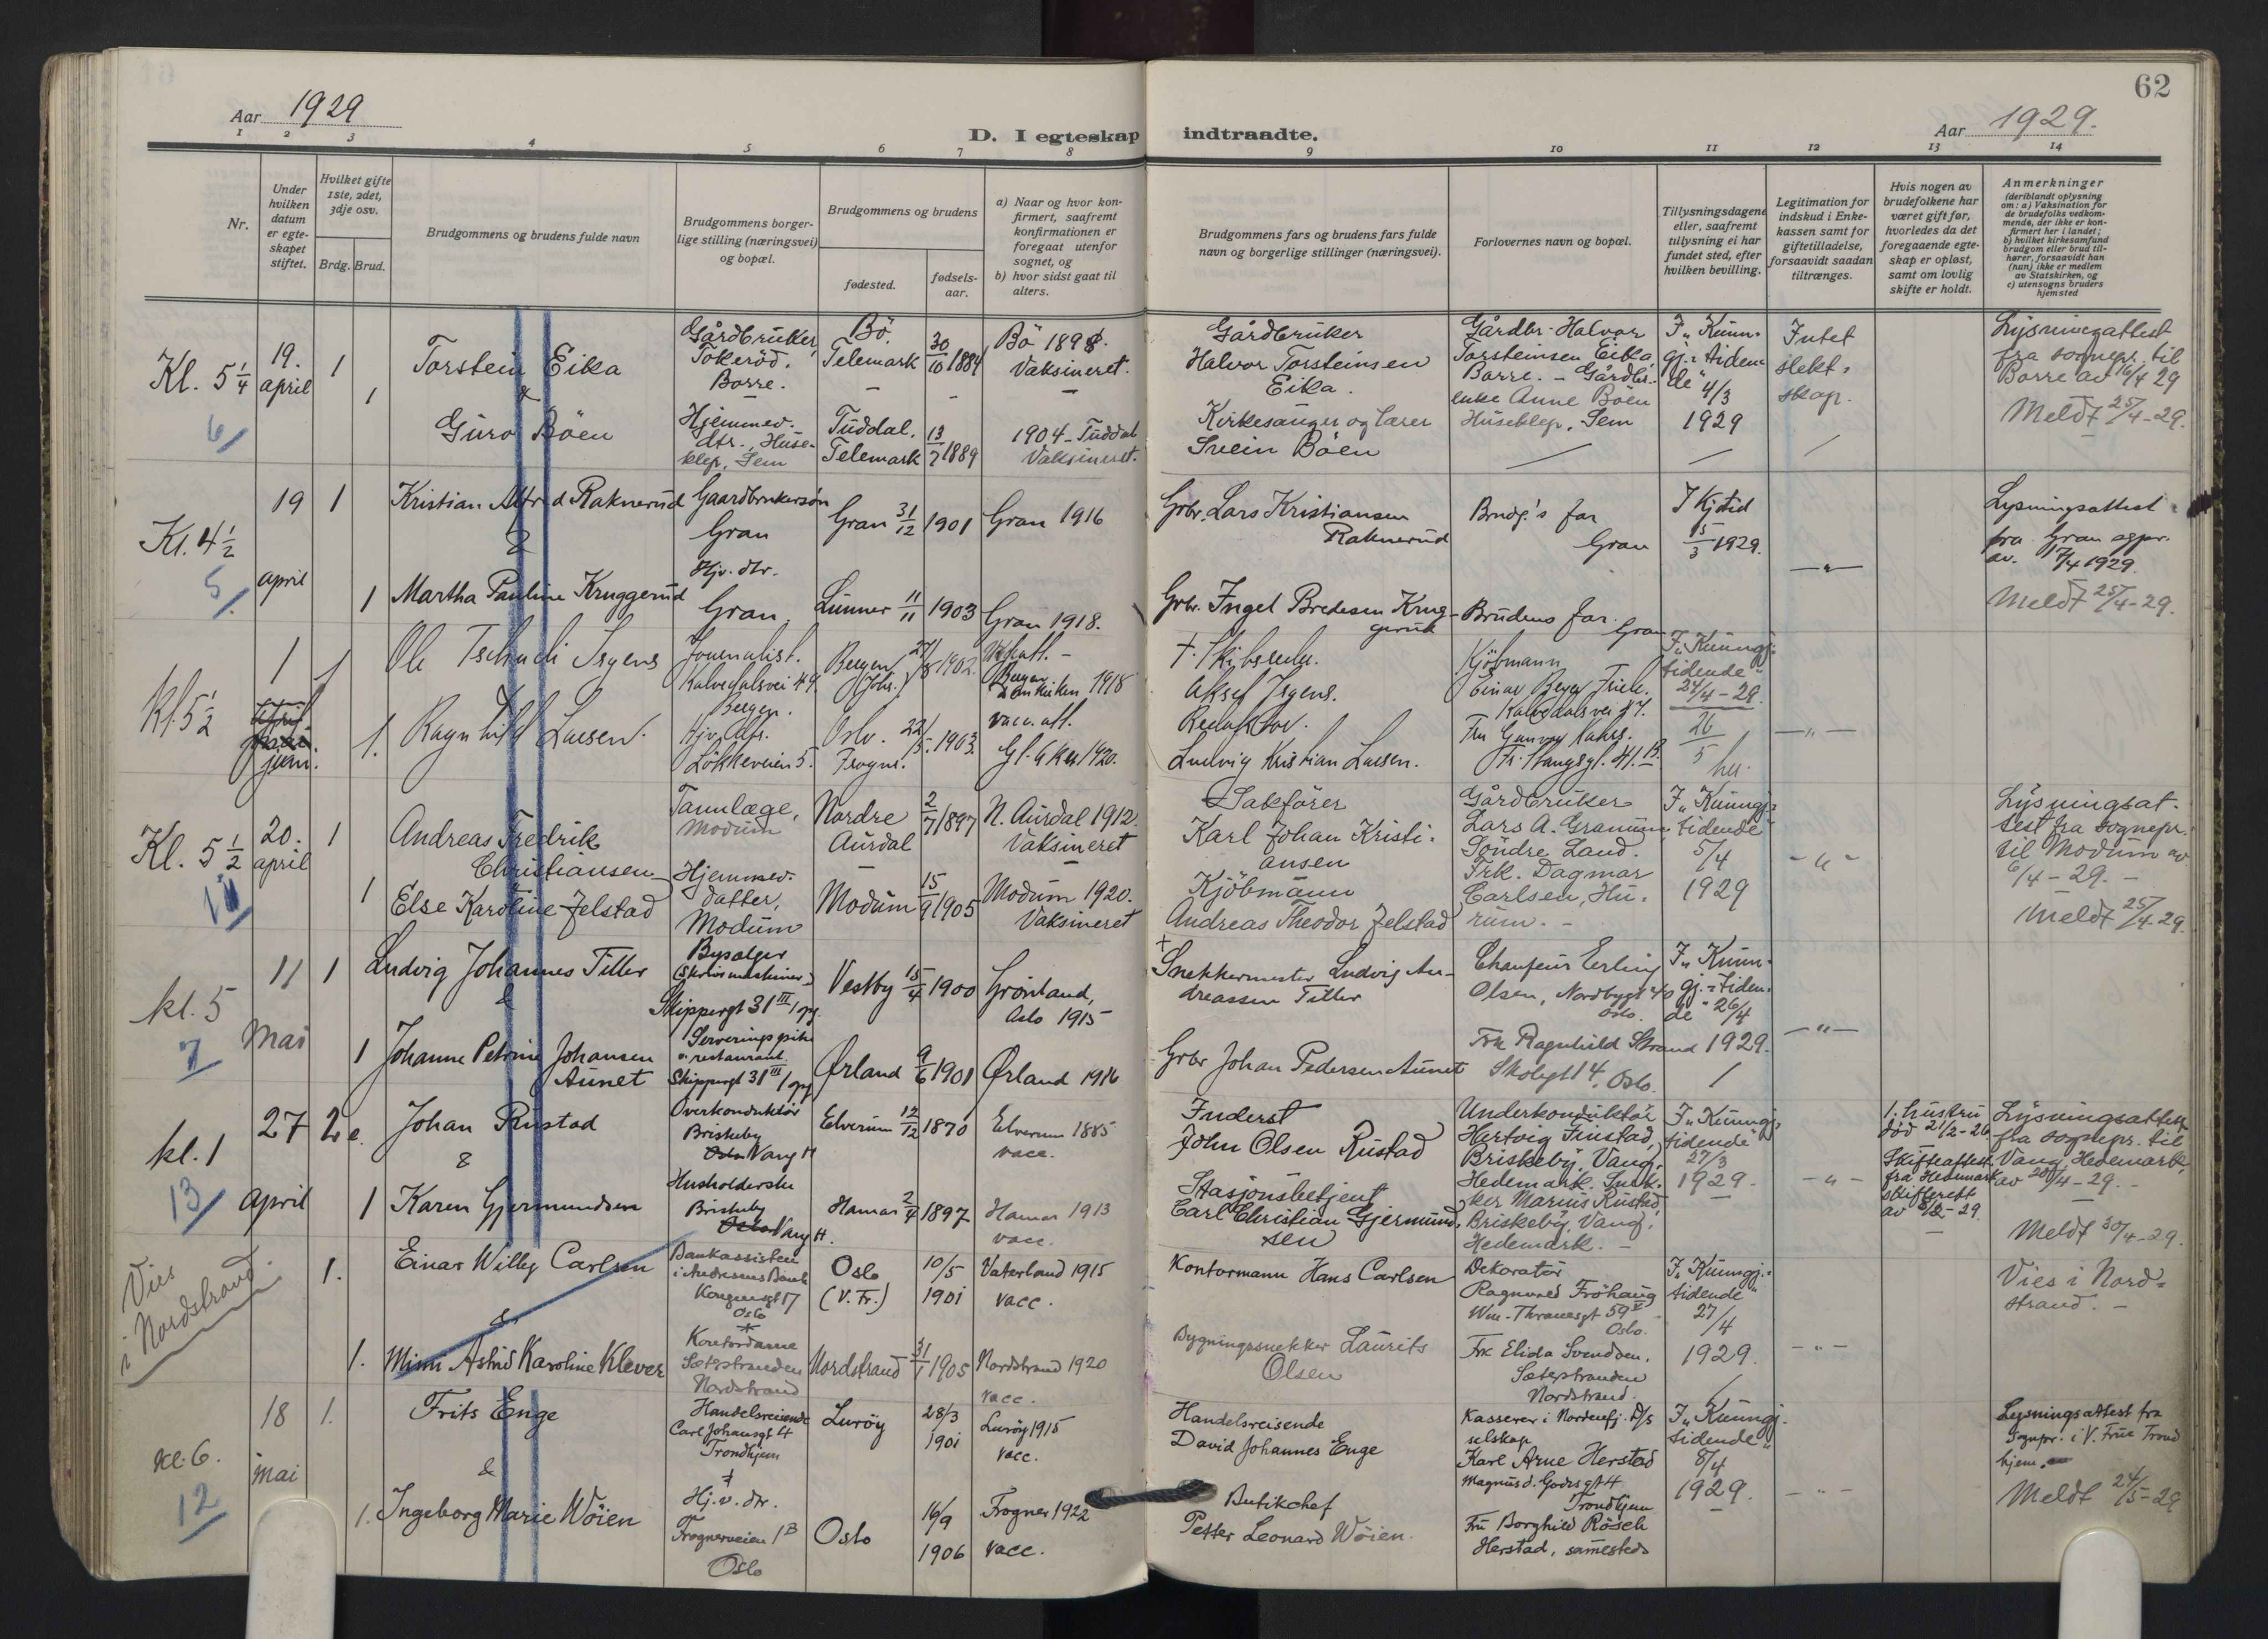 62
Aar 1929
D. I egteskap indtraadte.
Aar 1929.
1 2 3 4 5 6 7 8 9 10 11 12 13 14
Nr.
Under hvilken datum er egteskapet stiftet.
Hvilket gifte 1ste, 2det, 3dje osv.
Brdg. Brud.
Brudgommens og brudens fulde navn
Brudgommens borgerlige stilling (næringsvei) og bopæl.
Brudgommens og brudens
fødested.
fødselsaar.
a) Naar og hvor konfirmert, saafremt konfirmationen er foregaat utenfor sognet, og
b) hvor sidst gaat til alters.
Brudgommens fars og brudens fars fulde navn og borgerlige stillinger (næringsvei).
Forlovernes navn og bopæl.
Tillysningsdagene eller, saafremt tillysning ei har fundet sted, efter hvilken bevilling.
Legitimation for indskud i Enkekassen samt for giftetilladelse, forsaavidt saadan tiltrænges.
Hvis nogen av brudefolkene har været gift før, hvorledes da det foregaaende egteskap er opløst, samt om lovlig skifte er holdt.
Anmerkninger (deriblandt oplysning om: a) Vaksination for de brudefolks vedkommende, der ikke er konfirmert her i landet; b) hvilket kirkesamfund brudgom eller brud tilhører, forsaavidt han (hun) ikke er medlem av Statskirken, og c) utensogns bruders hjemsted
Kl. 5 1/4
6
19. april
1
Torstein Eika
&
Gårdbruker,
Tokerød.
Borre.
Bö.
Telemark
30/10 1884
Bö 1898.
Vaksineret.
Gårdbruker
Halvor Torsteinsen
Eika.
Gårdbr. Halvor
Torsteinsen Eika
Borre. - Gårdbr.
enke Anne Böen
Huseklep, Sem
I „Kunn-
gj.-tiden-
de" 4/3
1929
Intet
slekt-
skap.
Lysningsattest
fra sognepr. til
Borre av 16/4 29
Meldt 25/4-29.
1
Guro Böen
Hjemmev.
dtr., Huse-
klep, Sem
Tuddal.
Telemark
13/7 1889
1904 - Tuddal
Vaksineret.
Kirkesanger og lærer
Svein Böen
Kl. 4 1/2
5
19 april
1
Kristian Alfred Raknerud
&
Gaardbrukersøn
Gran
Gran 31/12 1901
Gran 1916
Grbr. Lars Kristiansen
Raknerud
Brudg.'s far
Gran
I Kjtid
15/3 1929.
Lysningsattest
fra Gran sgpr.
av. 17/4 1929.
Meldt 25/4-29.
1
Martha Pauline Kruggerud
Hjv. dtr.
Gran
Lunner 11/11 1903
Gran 1918.
Grbr. Ingel Bredesen Krug-
gerud
Brudens far.
Gran
Kl. 5 1/2
1
juni.
1
Ole Tschudi Irgens
Journalist.
Kalvedalsvei 49.
Bergen.
Bergen
(Johs.)
1902.
Bergen
Domkirken 1918
† Skibsrede.
Aksel Irgens.
Kjöbmann
Einar Beyer
Kalvedalsvei 47.
I „Kunngj.-
tidende"
24/4-29.
1.
Ragnhild Larsen.
Hjv. dtr.
Løkkeveien 5.
Oslo.
Frogner.
22/5. 1903.
vacc. att.
Gl. Aker 1920.
Redaktør.
Ludvig Kristian Larsen.
Fru Gunvor
Fr. Stangsgt. 41. B.
26/5
Kl. 5 1/2
20. april
1
Andreas Fredrik
Christiansen
Tannlæge,
Modum
Nordre
Aurdal
2/7 1897
N. Aurdal 1912.
Vaksineret
Sakfører
Karl Johan Kristi-
ansen
Gårdbruker
Lars A. Granum,
Söndre Land.
Frk. Dagmar
Carlsen, Hu-
rum. -
I „Kunngj.-
tidende"
5/4
1929
Lysningsat-
test fra sognepr.
til Modum av
6/4-29. -
Meldt 25/4-29.
1
Else Karoline Jelstad
Hjemmev.
datter,
Modum
Modum
15/9 1905
Modum 1920.
Vaksineret
Kjöbmann
Andreas Theodor Jelstad
kl. 5
7
11 Mai
1
Ludvig Johannes Titler
&
Bysælger
(Skrivemaskiner)
Skippergt 31 III opg
Vestby 15/4 1900
Grønland,
Oslo 1915
† Snekkermester Ludvig An-
dreassen Titler
Chauffeur Erling
Olsen, Nordbygt 40
Oslo.
Frk Ragnhild Strand
Skolegt 4, Oslo.
I „Kunn-
gj.-tiden-
de" 26/4
1929.
1
Johanne Petrine Johansen
Aunet
Serveringspike
v. restaurant.
Skippergt 31 III opg
Ørland 9/6 1901
Ørland 1916
Grbr Johan Pedersen Aunet
kl. 1
13
27 april
2
Johan Rustad
&
Overkonduktör
Briskeby
Vang H
Elverum 12/12 1870
Elverum 1885
vacc.
Inderst
John Olsen Rustad
Underkonduktør
Hertvig Finstad,
Briskeby, Vang,
Hedemark. Snek-
ker Marius Rustad,
Briskeby, Vang,
Hedemark. -
I „Kunngj.-
tidende"
27/3
1929.
1. hustru
död 21/2-26
Skifteattest
fra Hedemark
skifterett
Lysningsattest
fra sognepr. til
Vang, Hedemark
av 20/4-29. -
Meldt 30/4-29.
1
Karen Gjermundsen
Husholderske
Briskeby
Vang H.
Hamar 2/4 1897
Hamar 1913
vacc.
Stasjonsbetjent
Carl Christian Gjermund-
sen
Vies
i Nordstrand.
1.
Einar Willy Carlsen
&
Bankassistent
i Andresens Bank
Kongensgt 17
Oslo
Oslo
(V. Fr.)
10/5
1901
Vaterland 1915
vacc.
Kontormann Hans Carlsen
Dekoratør
Ragnvald Fröhaug
Wm. Thranesgt 59 II
Oslo.
Frk Elida Svendsen,
Sæterstranden
Nordstrand.
I „Kunngj.-
tidende"
27/4
1929.
Vies i Nord-
strand. -
1.
Mimi Astrid Karoline Klever
Kontordame
Sæterstranden
Nordstrand
Nordstrand
31/1 1905
Nordstrand 1920
vacc.
Bygningssnekker Laurits
Olsen
Kl. 6.
12
18 mai
1.
Frits Enge
&
Handelsreisende
Carl Johansgt 4
Trondhjem
Luröy
28/3
1901
Luröy 1915
vacc.
Handelsreisende
David Johannes Enge
Kasserer i Nordenfj. D/S
selskap
Karl Arne Herstad
Magnus d. Godesgt 4
Trondhjem
Fru Borghild Rösch
Herstad, samesteds
I „Kunngj.
tidende"
8/4
1929.
Lysningsattest fra
Sognpr. i V. Frue Trond
hjem.
Meldt 24/5-29
1.
Ingeborg Marie Wöien
Hj. v. dtr.
Frognerveien 1 B
Oslo
Oslo
16/9
1906
Frogner 1922
vacc.
Butikchef
Petter Leonard Wöien.